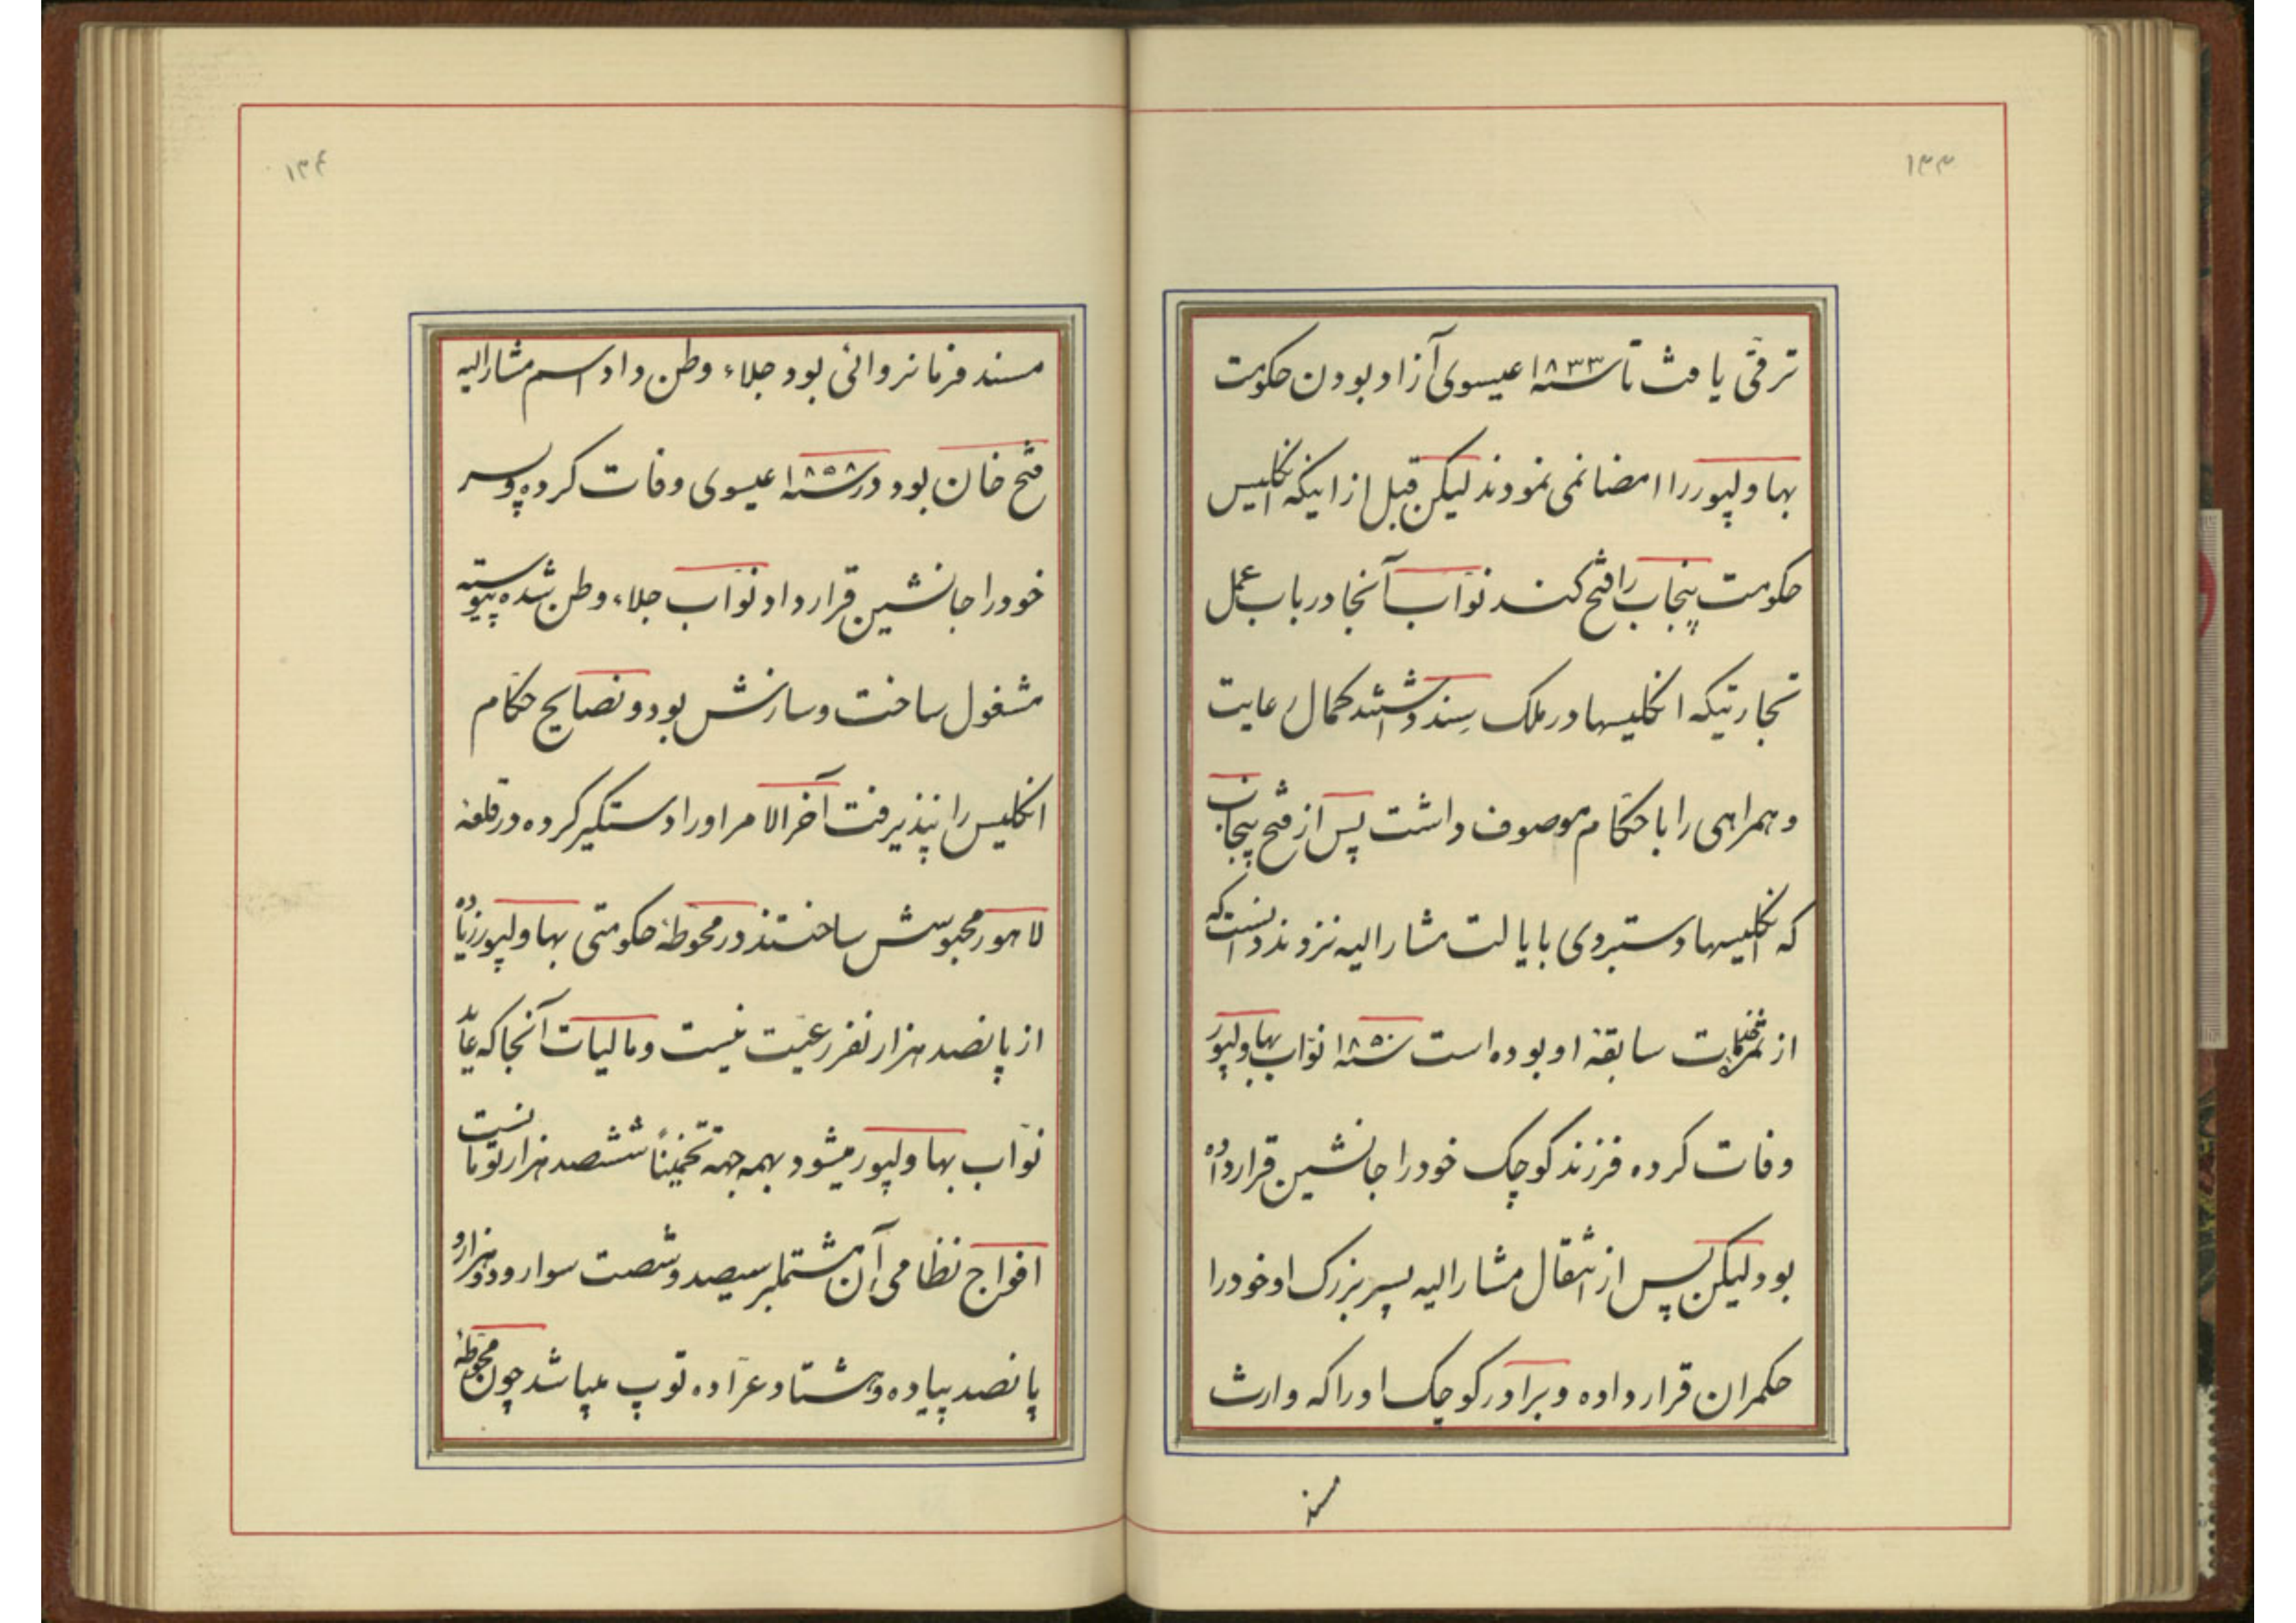 ۱۳۳
ترقی یافت تا سنه ۱۸۳۳ عیسوی آزاد بودن حکومت
بهاولپور را امضا نمی نمودند لیکن قبل از اینکه انکلیس
حکومت پنجاب را فتح کند نوّاب آنجا در باب عمل
تجارتیکه انکلیسها در ملک سِند داشتند کمال رعایت
و همراهی را با حکّام موصوف داشت پس از فتح پنجاب
که انکلیسها دستبردی بایالت مشارالیه نزدند دانست که
از سابقهٔ او بوده است سنه ۱۸۵۰ نوّاب بهاولپور
وفات کرده فرزند کوچک خود را جانشین قرار داده
بود لیکن پس از انتقال مشارالیه پسر بزرک او خود را
حکمران قرار داده و برادر کوچک او را که وارث
مسند
۱۳۴
مسند فرمانروائی بود جلاء وطن داد اسم مشارالیه
فتح خان بود در سنه ۱۸۵۸ عیسوی وفات کرده و پسر
خود را جانشین قرار داد نوّاب جلاء وطن شده پیوسته
مشغول ساخت و سازش بود و نصایح حکّام
انکلیس را نپذیرفت آخر الامر او را دستکیر کرده در قلعهٔ
لاهور محبوسش ساختند در محوطهٔ حکومتی بهاولپور زیاده
از پانصد هزار نفر رعیّت نیست و مالیات آنجا که عاید
نوّاب بهاولپور میشود بهمه جهة تخمیناً ششصد هزار تومانست
افواج نظامی آن مشتملبر سیصد و شصت سوار و دو هزار و
پانصد پیاده و هشتاد عرّاده توپ میباشد چون محوطهٔ